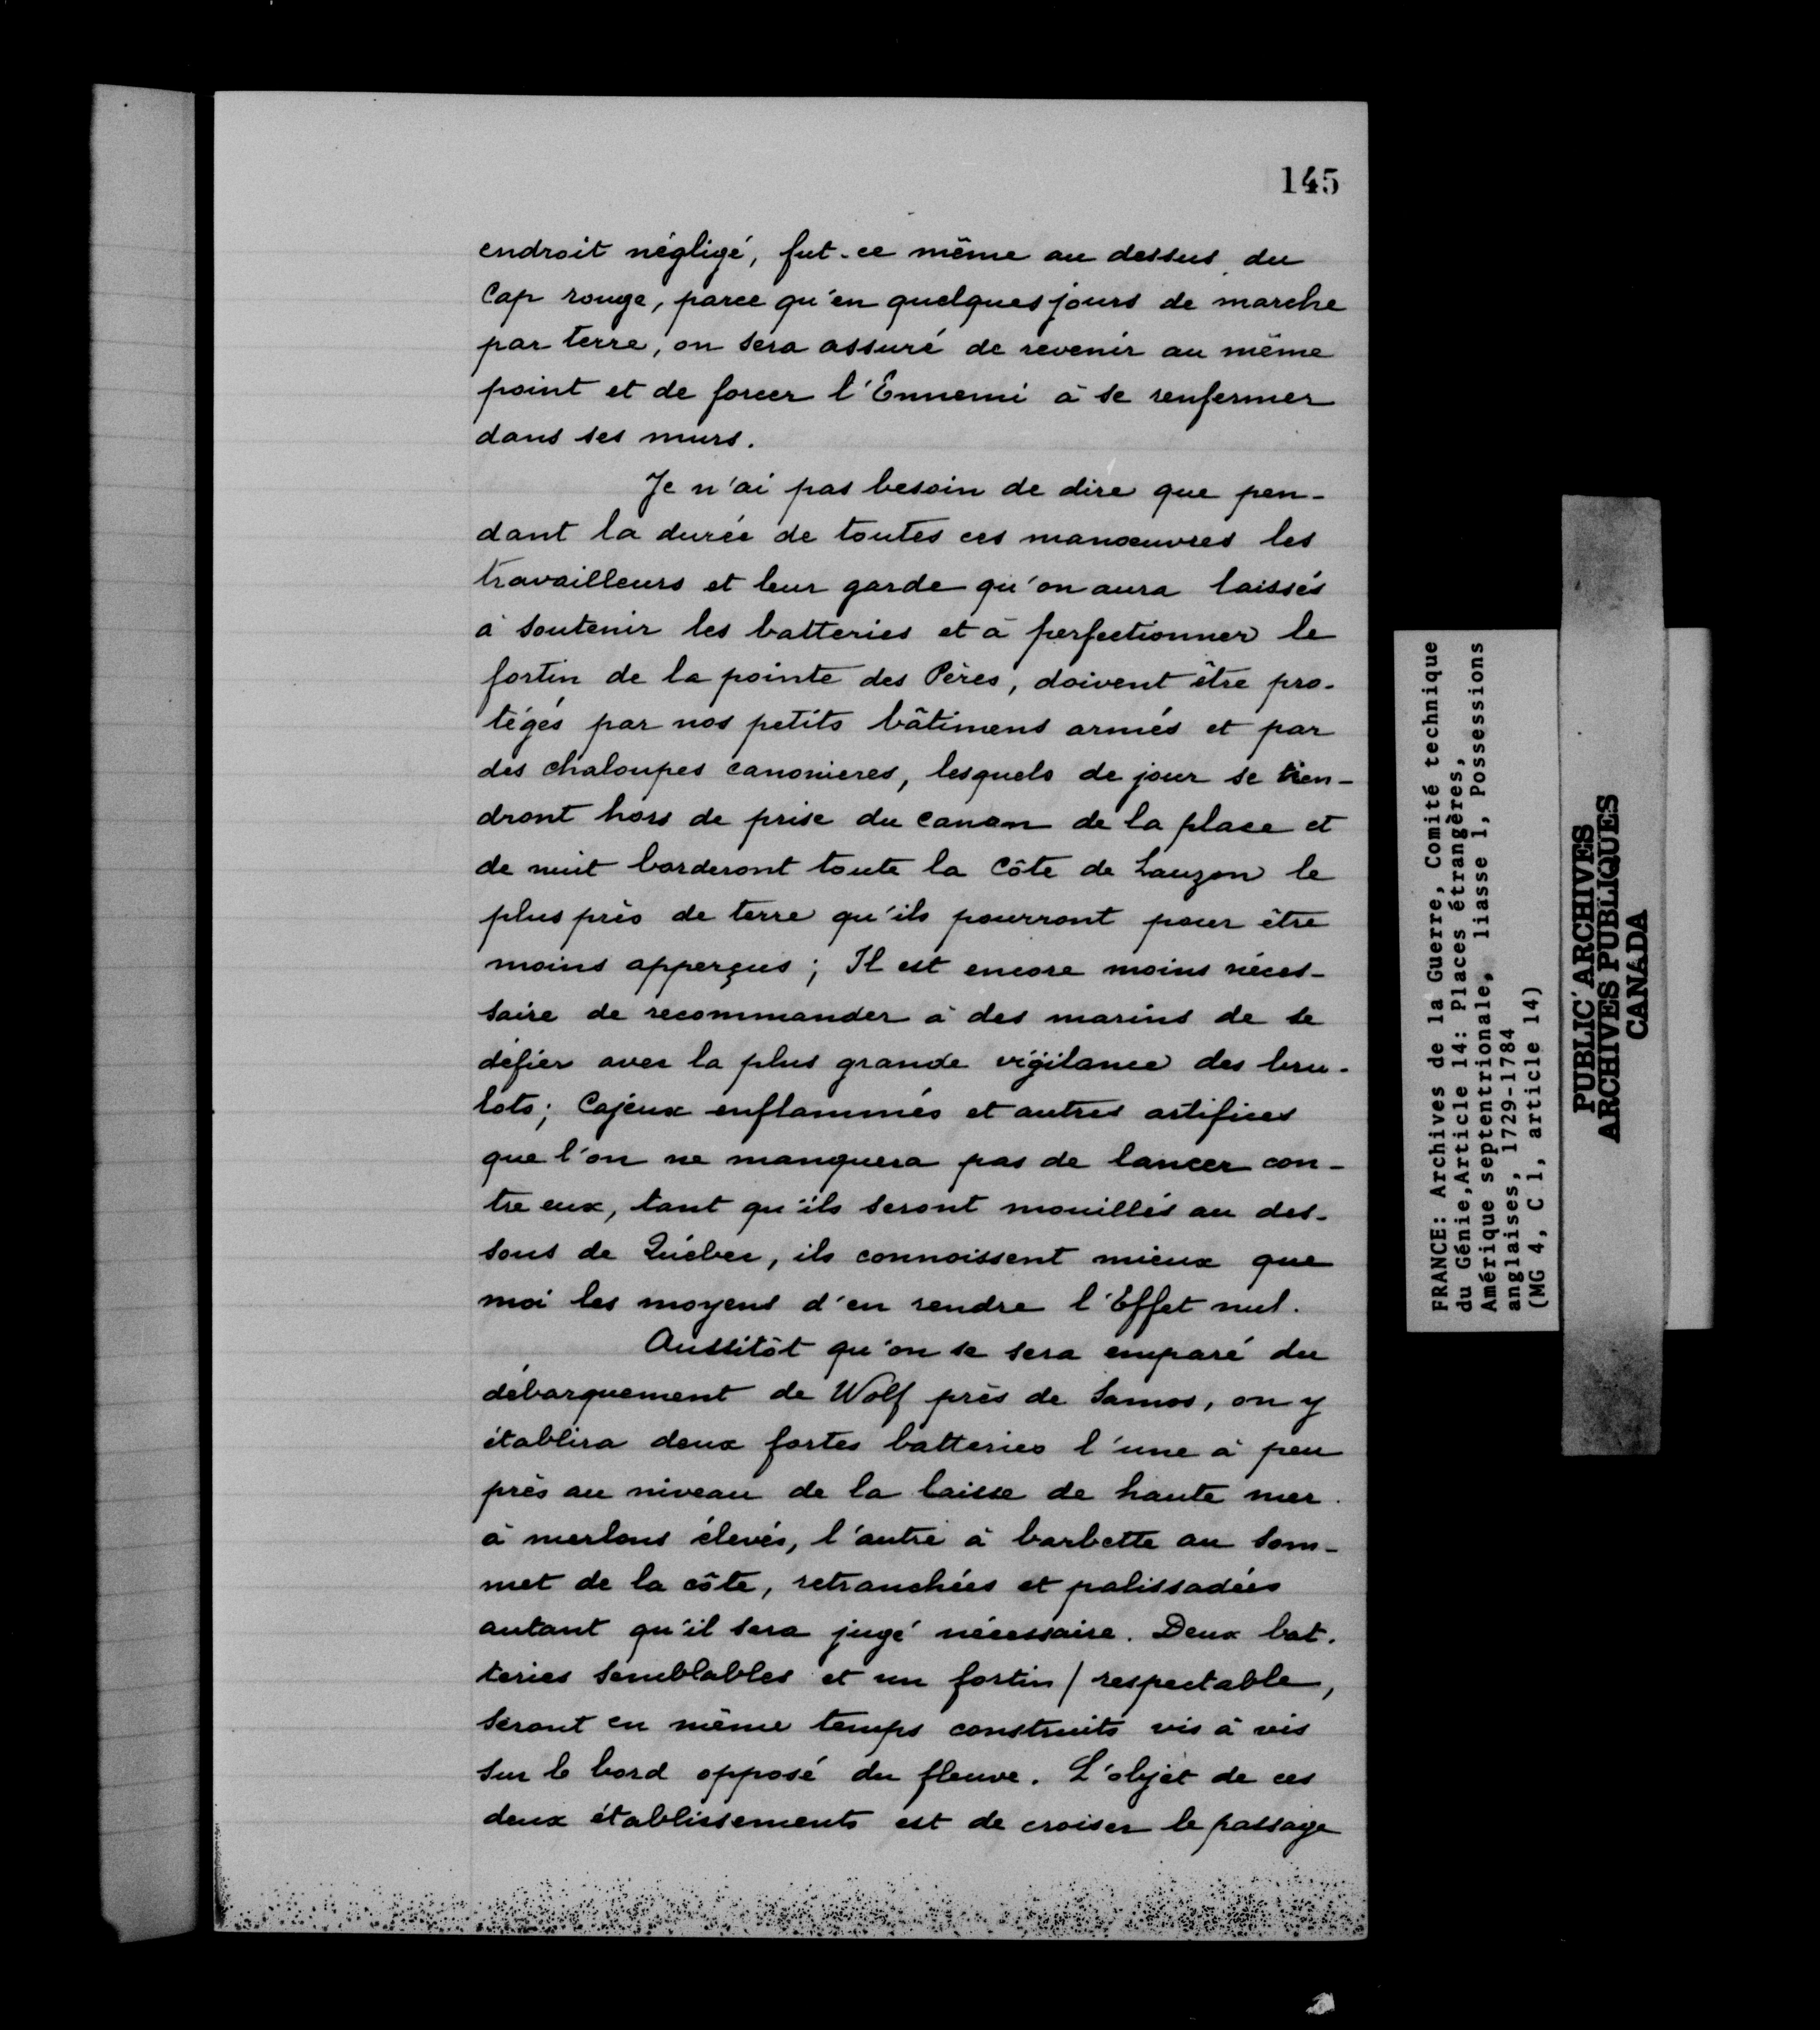 145
endroit négligé, fut-ce même au dessus du
Cap rouge, parce qu'en quelques jours de marche
par terre, on sera assuré de revenir au même
point et de forcer l'Ennemi à se renfermer
dans ses murs.
Je n'ai pas besoin de dire que pen-
dant la durée de toutes ces manœuvres les
travailleurs et leur garde qu'on aura laissés
à soutenir les batteries et à perfectionner le
fortin de la pointe des Pères, doivent être pro-
tégés par nos petits bâtimens armés et par
des chaloupes canonieres, lesquels de jour se tien-
dront hors de prise du canon de la place et
de nuit borderont toute la Côte de Lauzon le
plus près de terre qu'ils pourront pour être
moins apperçus; Il est encore moins néces-
saire de recommander à des marins de se
défier avec la plus grande vigilance des bru-
lots; Cajeux enflammés et autres artifices
que l'on ne manquera pas de lancer con-
tre eux, tant qu'ils seront mouillés au des-
sous de Québec, ils connoissent mieux que
moi les moyens d'en rendre l'Effet nul.
Aussitôt qu'on se sera emparé du
débarquement de Wolf près de Samos, on y
établira deux fortes batteries l'une à peu
près au niveau de la laisse de haute mer.
à merlons élevés, l'autre à barbette au som-
met de la côte, retranchées et palissadées
autant qu'il sera jugé nécessaire. Deux bat-
teries semblables et un fortin / respectable,
seront en même temps construits vis à vis
sur le bord opposé du fleuve. L'objet de ces
deux établissements est de croiser le passage
FRANCE: Archives de la Guerre, Comité technique
du Génie, Article 14: Places étrangères,
Amérique septentrionale, liasse 1, Possessions
anglaises, 1729-1784
(MG 4, C 1, article 14)
PUBLIC ARCHIVES
ARCHIVES PUBLIQUES
CANADA